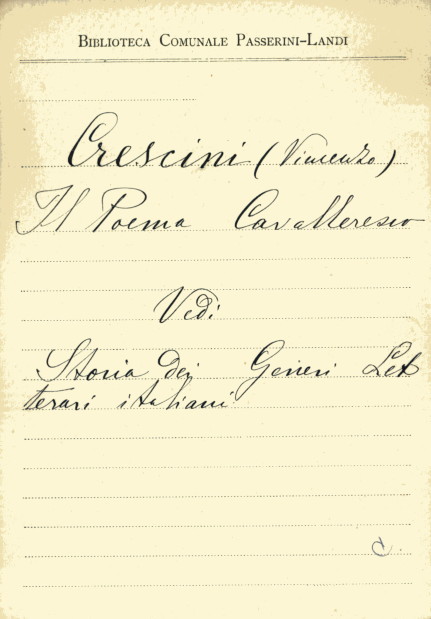 BIBLIOTECA COMUNALE PASSERINI-LANDI
Crescini (Vincenzo)
Il Poema Cavalleresco
Vedi
Storia dei Generi Let
terari italiani
C.